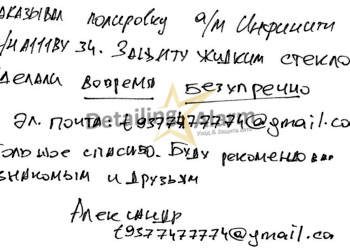 аказывал полировку а/м Инфинити
г/н А111ВУ 34. Защиту жидким стекло
делали вовремя Безупречно
Эл. почта t9377477774@gmail.co
большое спасибо. Буду рекомендова
знакомым и друзьям
Александр
t9377477774@gmail.co
Detailing Alarm
Уход & Защита авто